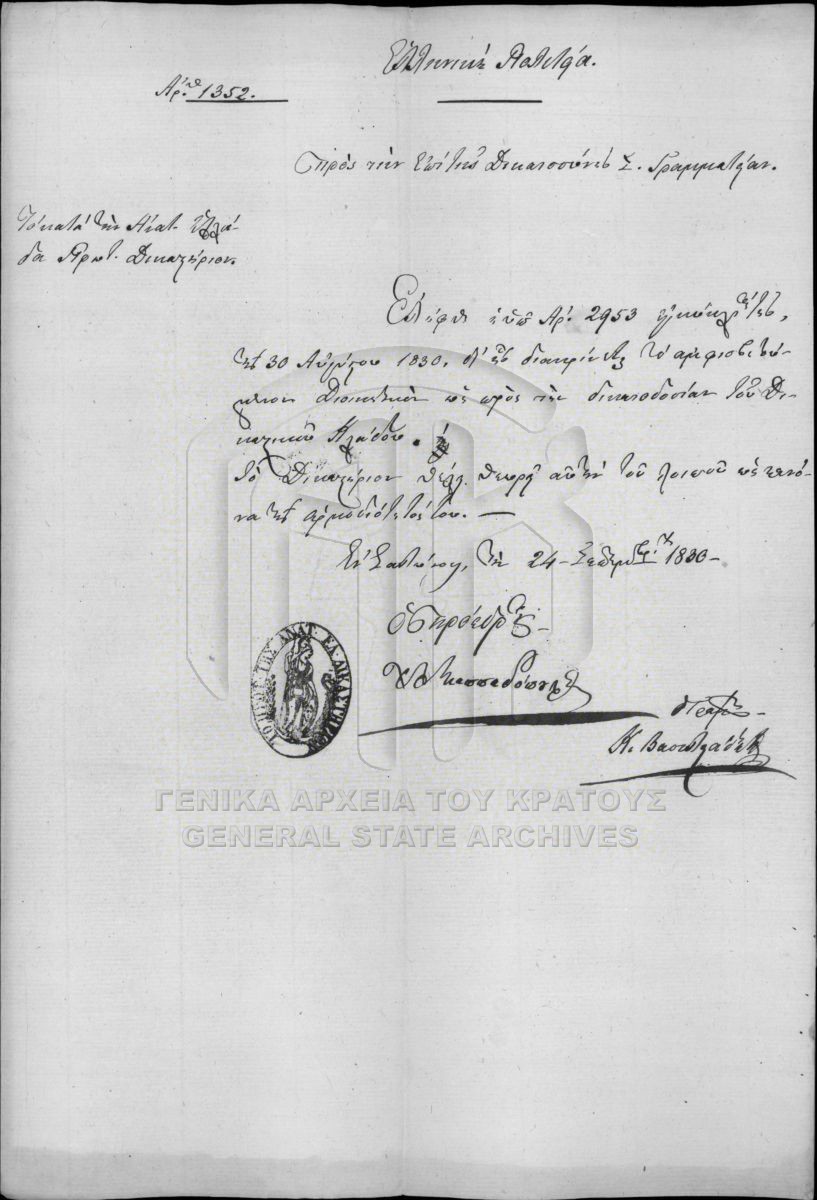 Ἑλληνικὴ Πολιτεία.
Ἀρ. 1352.
Πρὸς τὴν ἐπὶ τῆς Δικαιοσύνης Γ. Γραμματείαν.
Τὸ κατὰ τὴν Ἀνατ. Ἑλλά-
δα Πρωτ. Δικαστήριον.
Ἐλήφθη ἡ ὑπ' Ἀρ. 2953 ἐγκύκλιός της,
τῆς 30 Αὐγούστου 1830, δι' ἧς διακρίνεται τὸ
Διοικητικὸν ὡς πρὸς τὴν δικαιοδοσίαν τοῦ Δι-
καστικοῦ Κλάδου.
τὸ Δικαστήριον θέλει θεωρεῖ αὐτὴν τοῦ λοιποῦ ὡς κανό-
να τῆς ἁρμοδιότητός του. —
τῇ 24 Σεπτεμβρ. 1830
ὁ Πρόεδρος
ὁ Γραμ.
Κ. Βασιλειάδης
ΤΗΣ ΑΝΑΤ. ΕΛ. ΔΙΚΑΣΤΗΡΙΟΝ
ΓΕΝΙΚΑ ΑΡΧΕΙΑ ΤΟΥ ΚΡΑΤΟΥΣ
GENERAL STATE ARCHIVES